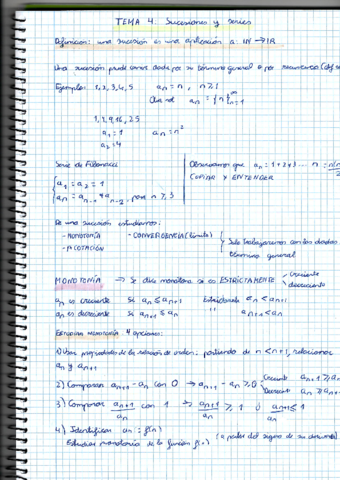 TEMA 4. Sucesiones y series
Definición: una sucesión es una aplicación a: IN → IR
Una sucesión puede venir dada por su término general o por recurrencia (def
Ejemplos: 1, 2, 3, 4, 5 an = n, n ≥ 1
an = {n}∞n=1
1, 4, 9, 16, 25
a1 = 1 an = n²
a2 = 4
Serie de Fibonacci
a1 = a2 = 1
an = an-1 + an-2, para n ≥ 3
Observamos que an = 1+2+3... n =
COPIAR Y ENTENDER
De una sucesión estudiamos:
- MONOTONÍA - CONVERGENCIA (límite)
- ACOTACIÓN
Solo trabajaremos con las dadas
término general
MONOTONÍA → Se dice monótona si es ESTRICTAMENTE creciente
decreciente
an es creciente si an ≤ an+1 Estrictamente an < an+1
an es decreciente si an+1 ≤ an " an+1 < an
Estudiar monotonía: 4 opciones:
1) Usar propiedades de la relación de orden: partiendo de n < n+1, relacionar
an y an+1
2) Comparar an+1 - an con 0 → an+1 - an ≥ 0 Creciente an+1 ≥ an
Decrecient an ≥ an+
3) Comparar an+1/an con 1 → an+1/an ≥ 1 ó an+1/an ≤ 1
4) Identificar an = f(n)
Estudiar monotonía de la función f(x) (a partir del signo de su derivada)